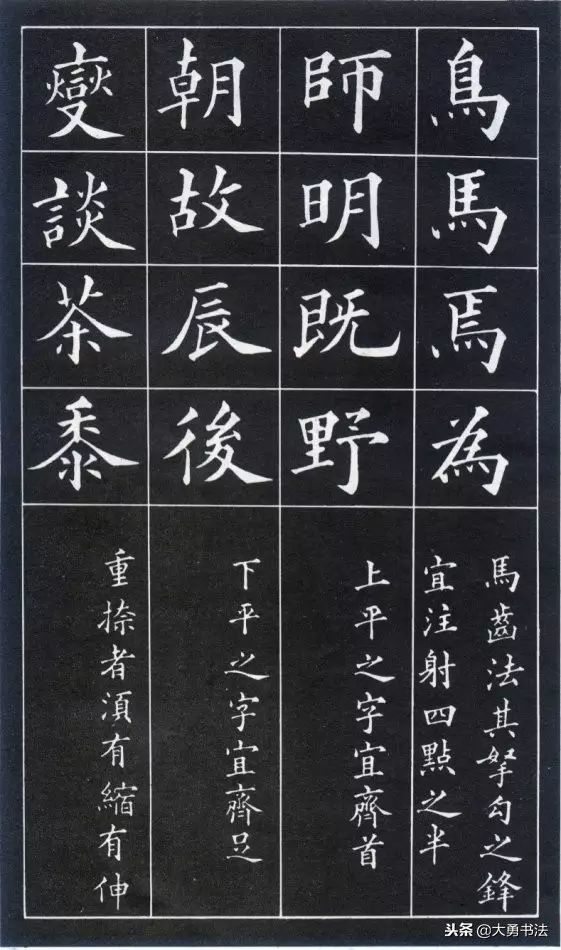 鳥馬焉為
馬齒法其拏勾之鋒
宜注射四點之半
師明既野
上平之字宜齊首
朝故辰後
下平之字宜齊足
變談茶黍
重捺者須有縮有伸
头条@大勇书法